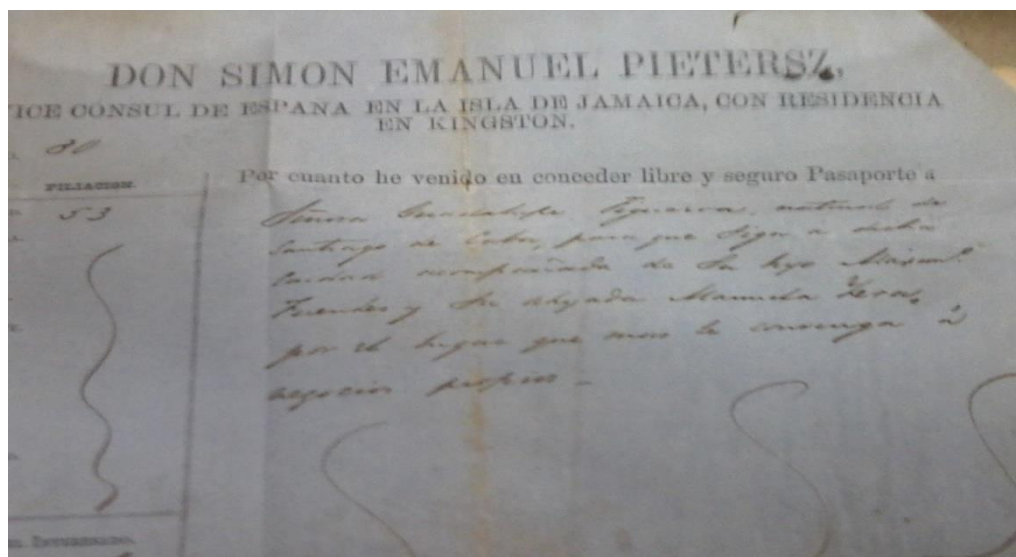 DON SIMON EMANUEL PIETERSZ,
ICE CONSUL DE ESPAÑA EN LA ISLA DE JAMAICA, CON RESIDENCIA
EN KINGSTON.
30
FILIACION.
53
Por cuanto he venido en conceder libre y seguro Pasaporte a
Señora Guadalupe Figueroa, natural de
Santiago de Cuba, para que siga a dicha
Ciudad acompañada de su hijo
Fuentes y su ahijada Manuela
por el lugar que mas le convenga á
negocios propios